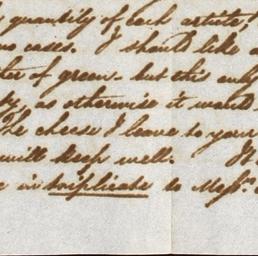 quantity of each article,
cases. I should like
of green - but this
as otherwise it would
The cheese I leave to your
will keep well.
in triplicate to Messrs.